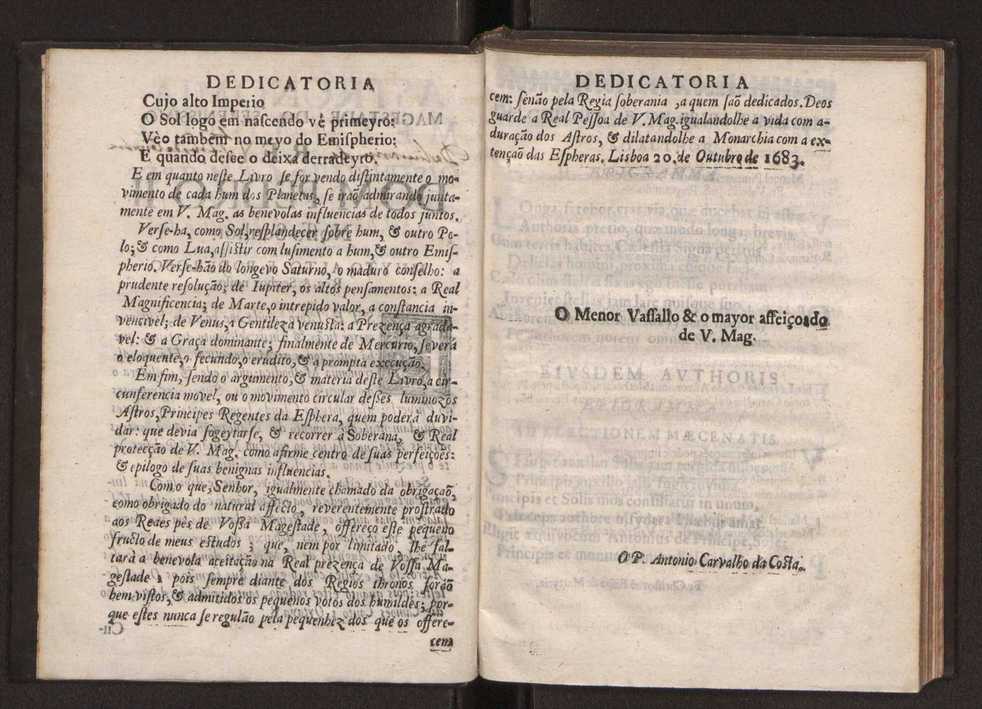 DEDICATORIA
Cujo alto Imperio
O Sol logo em nascendo vè primeyro;
Vèo tambem no meyo do Emispherio:
E quando desce o deixa derradeyro.
E em quanto neste Livro se for vendo distintamente o mo-
vimento de cada hum dos Planetas, se irão admirando junta-
mente em V. Mag. as benevolas influencias de todos juntos.
Verse-ha, como Sol, resplandecer sobre hum, & outro Po-
lo; & como Lua, assistir com lusimento a hum, & outro Emis-
pherio. Verse-hão do longevo Saturno, o maduro conselho: a
prudente resolução; de Iupiter, os altos pensamentos: a Real
Magnificencia; de Marte, o intrepido valor, a constancia in-
vencivel; de Venus, a Gentileza venusta: a Prezença agrada-
vel: & a Graça dominante; finalmente de Mercurio, se verá
o eloquente, o fecundo, o erudito, & a prompta execução.
Em fim, sendo o argumento, & materia deste Livro, a cir-
cunferencia movel, ou o movimento circular desses luminozos
Astros, Principes Regentes da Esphera, quem poderá duvi-
dar: que devia sogeytarse, & recorrer á Soberana, & Real
protecção de V. Mag. como afirme centro de suas perfeições:
& epilogo de suas benignas influencias.
Com o que, Senhor, igualmente chamado da obrigação,
como obrigado do natural affecto, reverentemente prostrado
aos Reaes pés de Vossa Magestade, offereço este pequeno
fructo de meus estudos; que, nem por limitado, lhe fal-
tará a benevola aceitação na Real prezença de Vossa Ma-
gestade: pois sempre diante dos Regios thronos forão
bem vistos, & admitidos os pequenos votos dos humildes; por-
que estes nunca se regulão pela pequenhez dos que os offere-
cem
DEDICATORIA
cem: senão pela Regia soberania, a quem são dedicados. Deos
guarde a Real Pessoa de V. Mag. igualandolhe a vida com a
duração dos Astros, & dilatandolhe a Monarchia com a ex-
tenção das Espheras. Lisboa 20. de Outubro de 1683.
O Menor Vassallo & o mayor affeiçoado
de V. Mag.
O P. Antonio Carvalho da Costa.